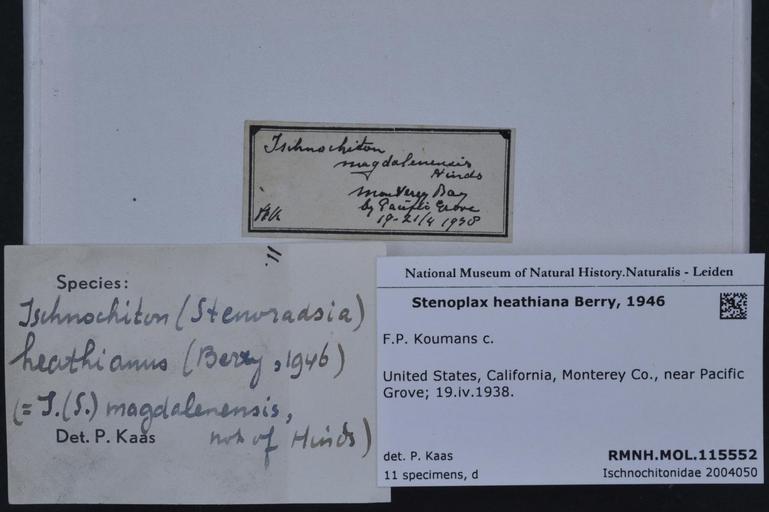 Ischnochiton
magdalenensis
Hinds
Monterey Bay
by Pacific Grove
19-21/4 1938
11.
Species:
Ischnochiton (Stenoradsia)
heathianus (Berry, 1946)
(= I. (S.) magdalenensis,
not of Hinds)
Det. P. Kaas
National Museum of Natural History.Naturalis - Leiden
Stenoplax heathiana Berry, 1946
F.P. Koumans c.
United States, California, Monterey Co., near Pacific
Grove; 19.iv.1938.
det. P. Kaas
RMNH.MOL.115552
11 specimens, d
Ischnochitonidae 2004050